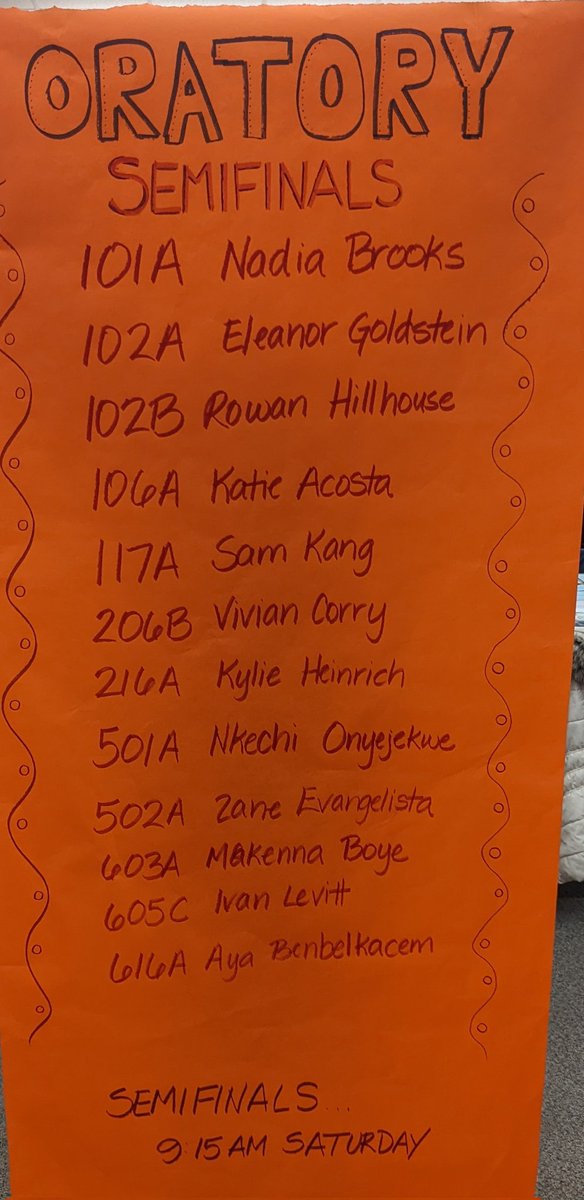 ORATORY
SEMIFINALS
101A Nadia Brooks
102A Eleanor Goldstein
102B Rowan Hillhouse
106A Katie Acosta
117A Sam Kang
206B Vivian Corry
216A Kylie Heinrich
501A Nkechi Onyejekwe
502A Zane Evangelista
603A Makenna Boye
605C Ivan Levitt
616A Aya Benbelkacem
SEMIFINALS...
9:15 AM SATURDAY